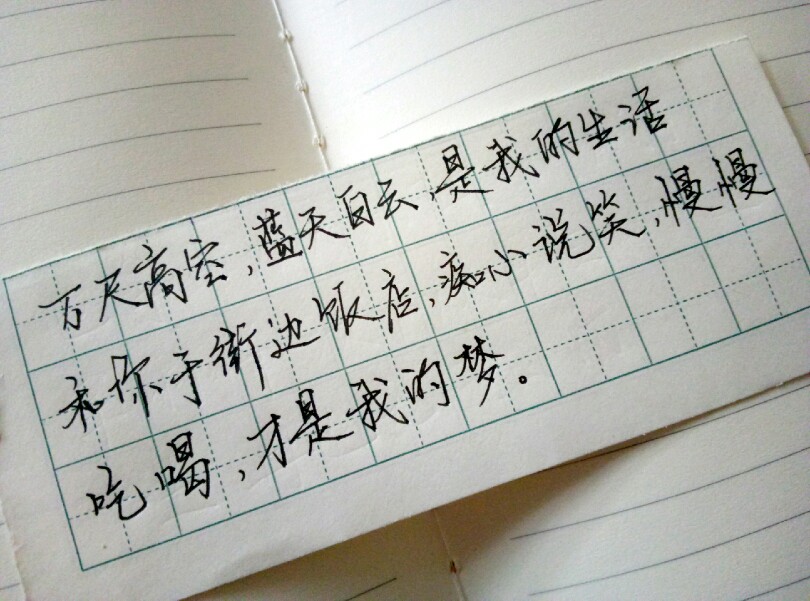 万尺高空,蓝天白云,是我的生活
和你于街边饭店,痴小说笑,慢慢
吃喝,才是我的梦。